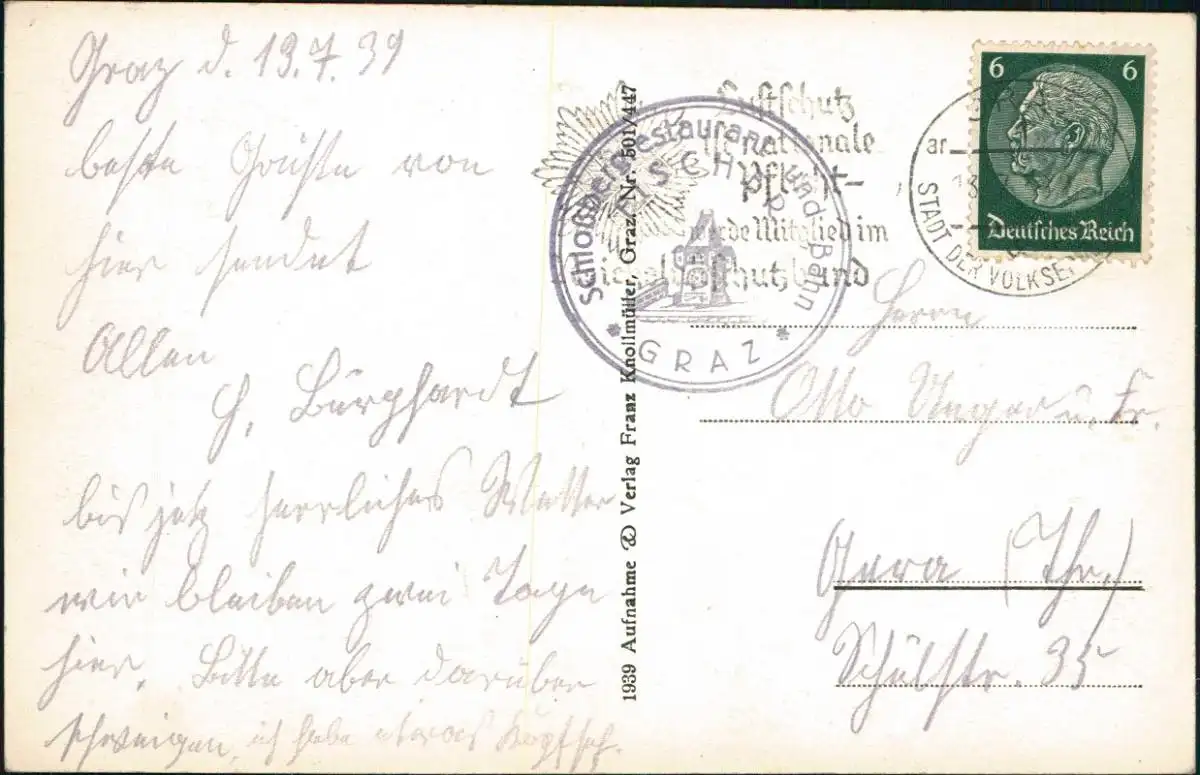 Graz d. 13.7.39
beste Grüße von
hier sendet
Allen
G. Burghardt
bis jetz herrliches Wetter
wir bleiben zwei Tage
hier. Bitte aber darüber
schweigen, ich habe etwas Kopfsch.
1939 Aufnahme & Verlag Franz Knollmüller, Graz. Nr. 501/447
Schloßbergrestaurant und-Bahn
* GRAZ *
Luftschutz
nationale
Pflicht-
werde Mitglied im
schutzbund
STADT DER VOLKSE
6 6
Deutsches Reich
Herrn
Otto Unger u. Fr.
Gera (Thr.)
Schülstr. 35